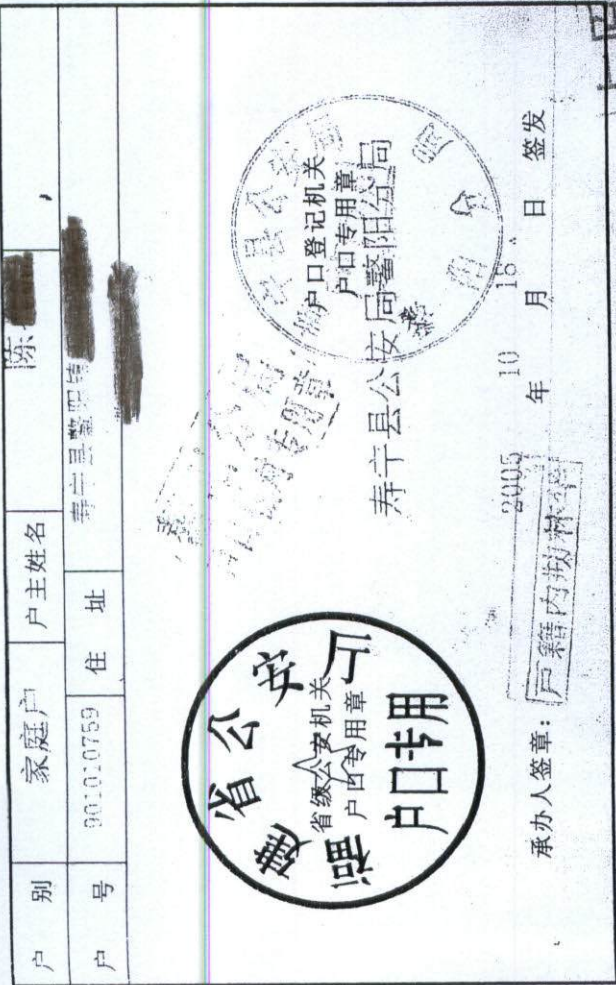 户 别 家庭户 户主姓名 陈
户 号 901010759 住 址 寿宁县鳌阳镇
福建省公安厅
省级公安机关
户口专用章
户口专用
户口登记机关
户口专用章
寿宁县公安局鳌阳分局
承办人签章: 户籍内勤
2005 年 10 月 18 日 签发